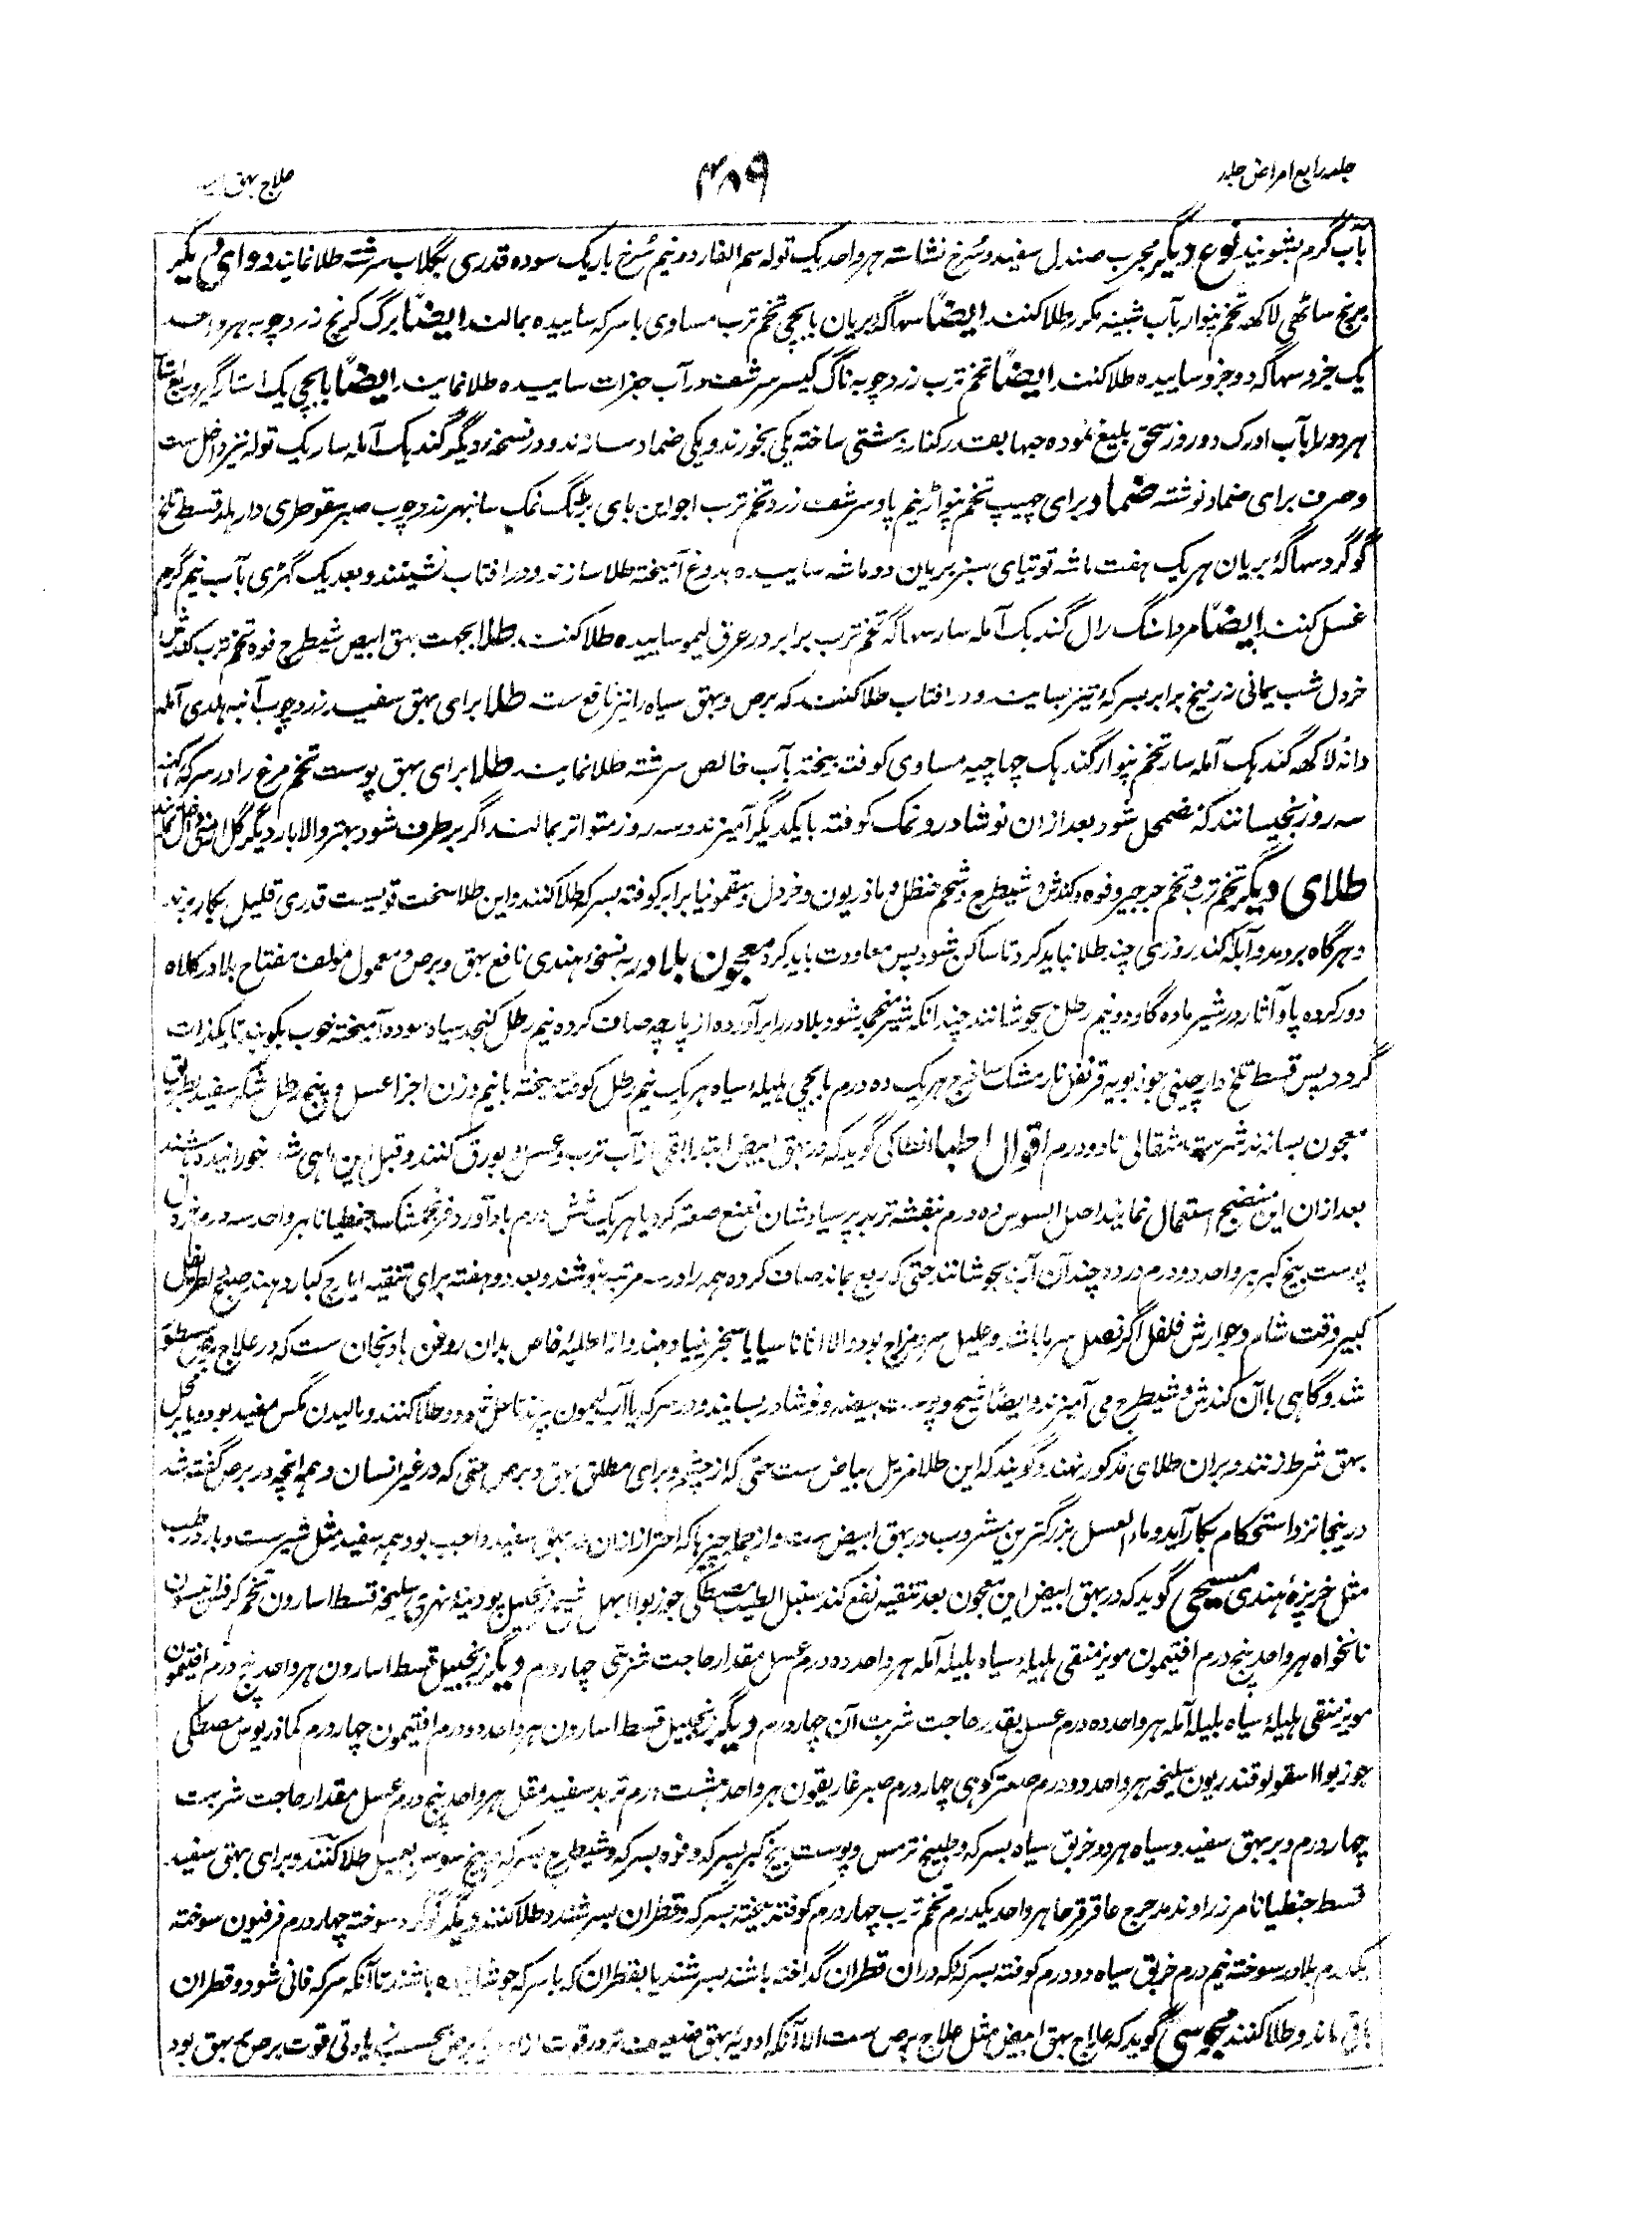 جلد رابع امراض جلد
۴۸۹
علاج بهق
بآب گرم بشویند نوع دیگر مجرب صندل سفید و سرخ نشاسته هر واحد یک توله سم الفار دو نیم سرخ باریک سوده قدری بگلاب سرشته طلا نمایند دوای دیگر
برنج ساٹھی لاکھ تخم پنوار بآب شبینه مکرر طلا کنند ایضاً سہاگہ بریان بابچی تخم ترب مساوی با سرکه ساییده بمالند ایضاً برگ کرنج زردچوبه هر واحد
یک جزو سہاگہ دو جزو ساییده طلا کنند ایضاً تخم ترب زردچوبه ناگ کیسر سرشعف در آب جزات ساییده طلا نمایند ایضاً بابچی یک استار گیرو ربع استار
هر دو را بآب ادرک دو روز سحق بلیغ نموده حبها بقدر کنار دشتی ساخته یکی بخورند و یکی ضماد سازند و در نسخه دیگر گندہک آمله سار یک توله نیز داخل ست
و صرف برای ضماد نوشته ضماد برای چهیپ تخم پنواڑ نیم پاو سرشعف زرد تخم ترب اجواین بای بڑنگ نمک سانبهر زردچوب صبر سقوطری دارہلد قسط تلخ
گوگرد سہاگۂ بریان هر یک هفت ماشه توتیای سبز بریان دو ماشه ساییده بدوغ آمیخته طلا سازند و در آفتاب نشینند و بعد یک گهڑی بآب نیم گرم
غسل کنند ایضاً مرداسنگ رال گندہک آمله سار سہاگہ تخم ترب برابر در عرق لیمو ساییده طلا کنند طلا بجهت بهق ابیض شیطرج فوه تخم ترب کندش
خردل شب یمانی زرنیخ برابر بسرکۂ تیز بسایند و در آفتاب طلا کنند که برص و بهق سیاه را نیز نافع ست طلا برای بهق سفید زردچوب آنبه ہلدی آمله
دانه لاکھ گندہک آمله سار تخم پنوار گندہک چاچیه مساوی کوفته بیخته بآب خالص سرشته طلا نمایند طلا برای بهق پوست تخم مرغ را در سرکه کهنه
سه روز بخیسانند که مضمحل شود بعد ازان نوشادر و نمک کوفته با یکدیگر آمیزند و سه روز متواتر بمالند اگر برطرف شود بهتر والا بار دیگر
طلای دیگر تخم ترب و تخم جرجیر و فوه و کندش و شیطرج و شحم حنظل و ماذریون و خردل و سقمونیا برابر کوفته بسرکه طلا کنند و این طلا سخت قویست قدری قلیل بکار برند
و هرگاه بردمد و آبله کند روزی چند طلا نباید کرد تا ساکن شود پس معاودت باید کرد معجون بلادر به نسخۂ هندی نافع بهق و برص و معمول مولف مفتاح بلادر کلاه
دور کرده پاو آثار در شیر ماده گاو دو نیم رطل بجوشانند چندانکه شیر منجمد شود بلادر را برآورده از پارچه صاف کرده نیم رطل کنجد سیاه سوده آمیخته خوب بکوبند تا یکذات
گردد پس قسط تلخ دارچینی جوزبویه قرنفل نارمشک ساذج هر یک ده درم بابچی ہلیله سیاه هر یک نیم رطل کوفته بیخته با نیم وزن اجزا عسل و پنج رطل شکر سفید بطریق
معجون بسازند شربت مثقالی تا دو درم اقوال اطبا انطاکی گوید که در بهق ابیض ابتدا بقی از آب ترب و عسل و بورق کنند و قبل ازین ماهی شور خورانیده باشند
بعد ازان این منضج استعمال نمایند اصل السوس ده درم بنفشه تربد پرسیاوشان نعنع صعتر کرویا هر یک شش درم بادآورد فرنجمشک جنطیانا هر واحد سه درم
پوست بیخ کبر هر واحد دو درم در ده چند آن آب بجوشانند حتی که ربع بماند صاف کرده همه را در سه مرتبه بنوشند و بعد دو هفته برای تنقیه ایارج کبار دهند صبح اطریفل
کبیر وقت شام و جوارش فلفل اگر فصل سرما باشد و علیل سرد مزاج بود والا اناناسیا یا سجزینیا دهند و از اطلیۂ خاص بدان روغن بادنجان ست که در علاج برص مسطور
شد و گاهی با آن کندش و شیطرج می آمیزند و ایضاً شیح و پوست بیضه و نوشادر بسایند و در سرکه یا آب لیمون پزند تا حل شود و طلا کنند و مالیدن مگس مفید بود و یا بر محل
بهق شرط زنند و بران طلای مذکور نهند و گویند که این طلا مزیل بیاض ست حتی که از چشم و برای مطلق بهق و برص حتی که در غیر انسان و همه آنچه در برص گفته شد
درینجا نزد استحکام بکار آید و ماء العسل بزرگترین مشروب در بهق ابیض ست و از جمله چیزها که احتراز ازان در بهق سفید واجب بود همه سفید مثل شیرست و بارد رطب
مثل خربزۂ هندی مسیحی گوید که در بهق ابیض این معجون بعد تنقیه نفع کند سنبل الطیب مصطگی جوزبوا ابهل شیح زنجبیل پودینۂ نهری سلیخه قسط اسارون تخم کرفس انیسون
نانخواه هر واحد پنج درم افتیمون مویز منقی ہلیلۂ سیاه بلیله آمله هر واحد ده درم عسل مقدار حاجت شربتی چهار درم دیگر زنجبیل قسط اسارون هر واحد پنج درم افتیمون
مویز منقی ہلیلۂ سیاه بلیله آمله هر واحد ده درم عسل بقدر حاجت شربت آن چهار درم دیگر زنجبیل قسط اسارون هر واحد دو درم افتیمون چهار درم کمادریوس مصطکی
جوزبوا اسقولوقندریون سلیخه هر واحد دو درم صعتر کوهی چهار درم صبر غاریقون هر واحد هشت درم تربد سفید مقل هر واحد پنج درم عسل مقدار حاجت شربت
چهار درم و بر بهق سفید و سیاه هر دو خربق سیاه بسرکه و طبیخ ترمس و پوست بیخ کبر بسرکه و فوه بسرکه و شیطرج بسرکه و بیخ سوسن بعسل طلا کنند و برای بهق سفید
قسط جنطیانا مر زراوند مدحرج عاقرقرحا هر واحد یکدرم تخم ترب چهار درم کوفته بیخته بسرکه و قطران بسرشند و طلا کنند دیگر گوگرد سوخته چهار درم فرفیون سوخته
یکدرم بلادر سوخته نیم درم خربق سیاه دو درم کوفته بسرکه که دران قطران گداخته باشند بسرشند یا بقطران که با سرکه جوشانیده باشند تا آنکه سرکه فانی شود و قطران
باقی ماند و طلا کنند مجوسی گوید که علاج بهق ابیض مثل علاج برص ست الا آنکه ادویۂ بهق ضعیف تر در قوت از ادویه برص بحسب زیادتی قوت برص بر بهق بود